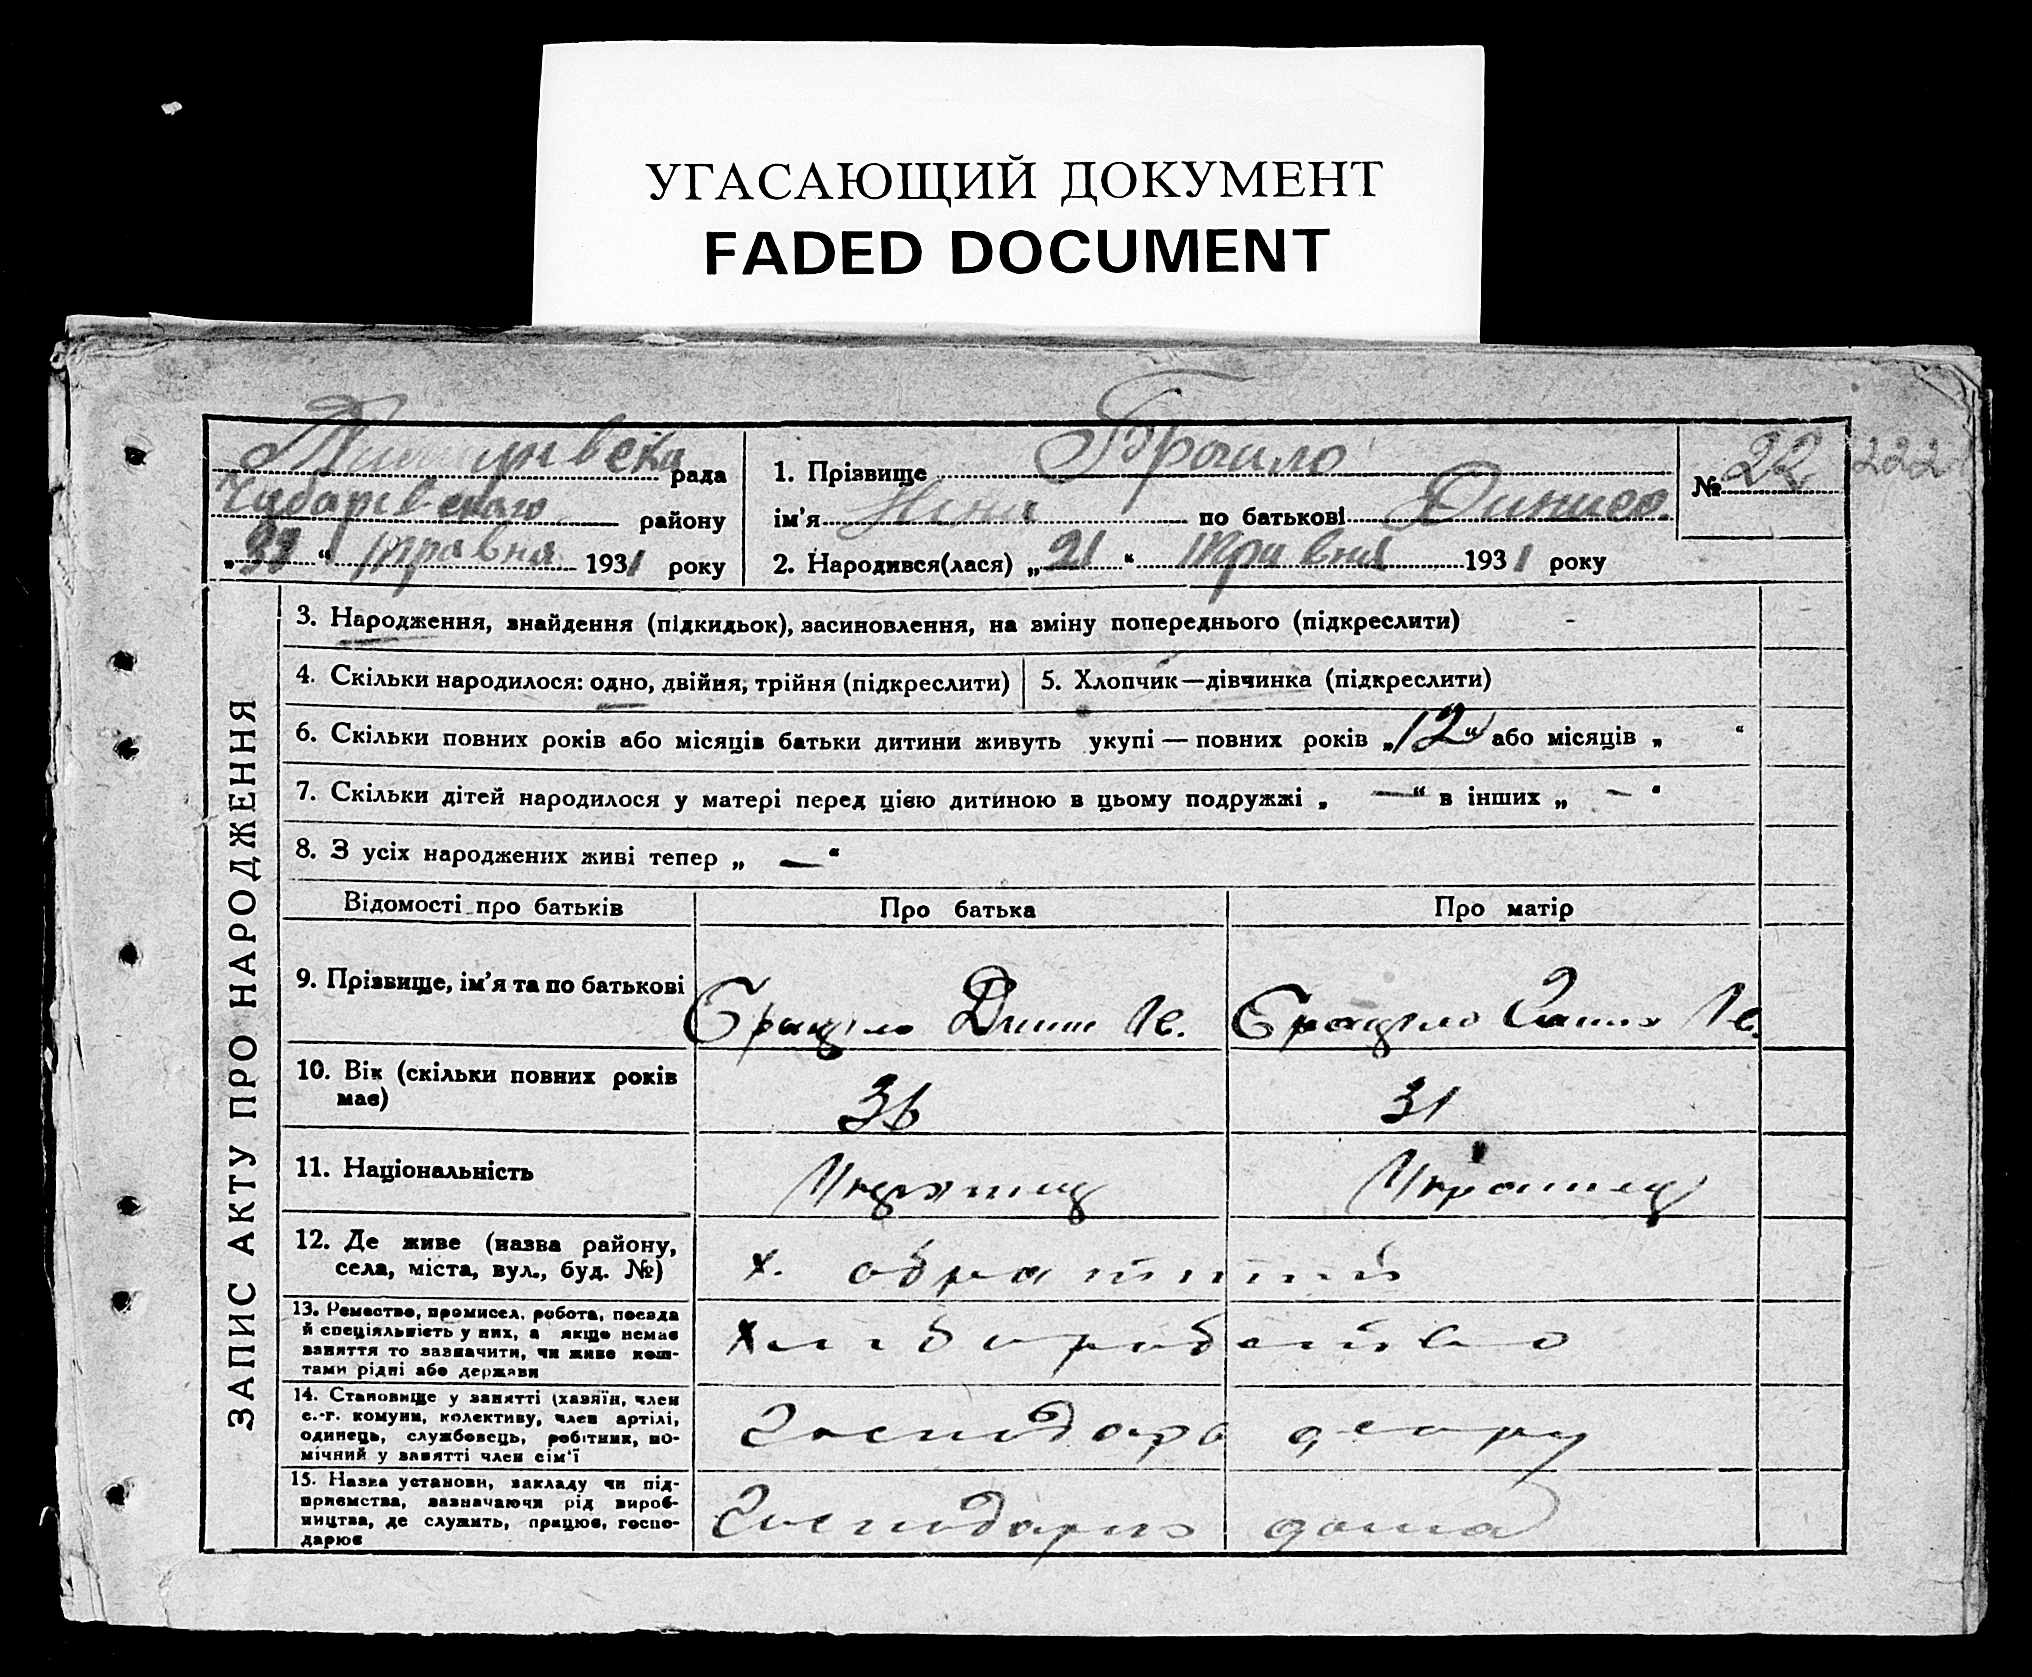 УГАСАЮЩИЙ ДОКУМЕНТ
FADED DOCUMENT
рада
Чубарівського району
травня 1931 року
1. Прізвище
ім'я Ніна по батькові
2. Народився(лася) „21“ травня 1931 року
№ 22
222
ЗАПИС АКТУ ПРО НАРОДЖЕННЯ
3. Народження, знайдення (підкидьок), засиновлення, на зміну попереднього (підкреслити) -
4. Скільки народилося: одно, двійня, трійня (підкреслити)
5. Хлопчик—дівчинка (підкреслити)
6. Скільки повних років або місяців батьки дитини живуть укупі — повних років „12“ або місяців „ “
7. Скільки дітей народилося у матері перед цією дитиною в цьому подружжі „ — “ в інших „ — “
8. З усіх народжених живі тепер „ — “
Відомості про батьків
Про батька
Про матір
9. Прізвище, ім'я та по батькові
10. Вік (скільки повних років має)
36
31
11. Національність
Українец
Українец
12. Де живе (назва району, села, міста, вул., буд. №)
х.
13. Ремество, промисел, робота, посада й спеціяльність у них, а якщо немає заняття то зазначити, чи живе кош-тами рідні або держави
Хліборобство
14. Становище у занятті (хазяїн, член с.-г. комуни, колективу, член артілі, одинець, службовець, робітник, по-мічний у занятті член сім'ї
Господарь двору
15. Назва установи, закладу чи під-приємства, зазначаючи рід вироб-ництва, де служить, працює, госпо-дарює
дома